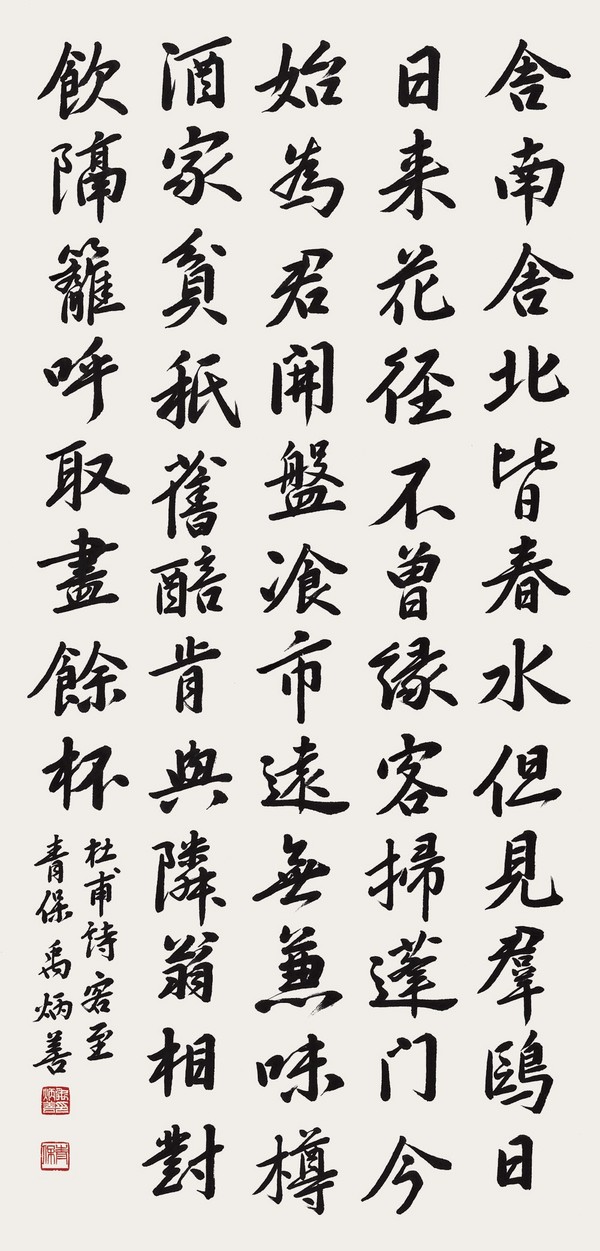 舍南舍北皆春水但見羣鷗日
日来花径不曾緣客掃蓬门今
始為君開盤飡市遠無兼味樽
酒家貧秖舊醅肯與隣翁相對
飲隔籬呼取盡餘杯
杜甫詩客至
青保禹炳善